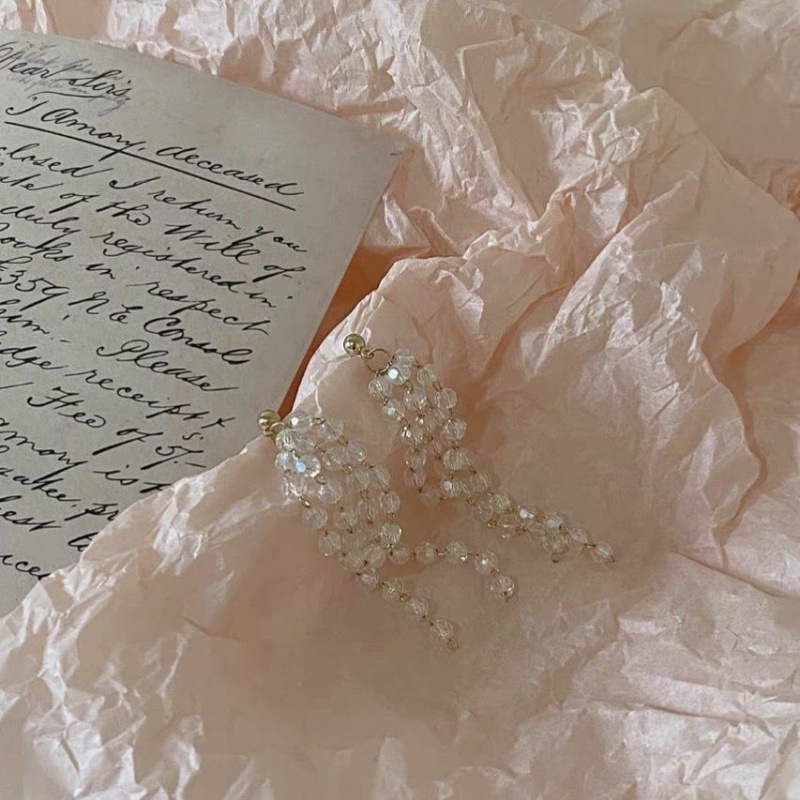 Dear Sirs
J Amory, deceased
closed I return you
ate of the Will of
duly registered in
Books in respect
£359 N E Consols
him:- Please
edge receipt
Fee of 5/-
amory is